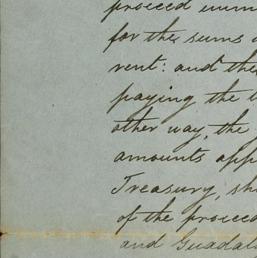 proceed imme
for the sums
rent: and the
paying the
other way, the
amounts app
Treasury, sh
of the proceed
and Guadal